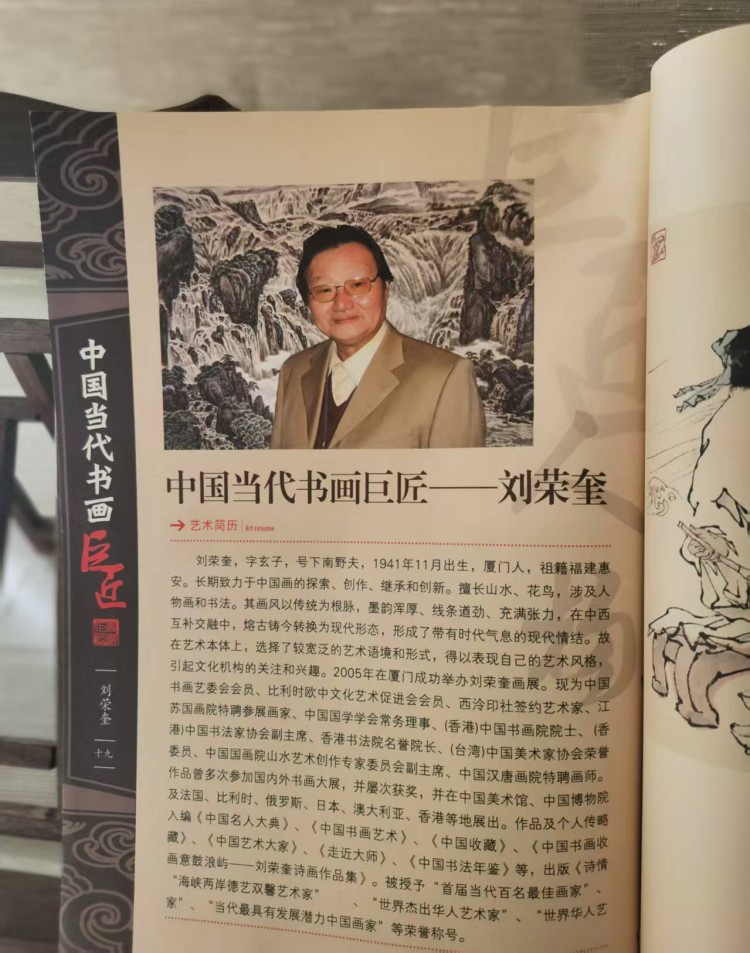 中国当代书画
巨匠
刘荣奎
十九
中国当代书画巨匠——刘荣奎
艺术简历 Art resume
刘荣奎，字玄子，号下南野夫，1941年11月出生，厦门人，祖籍福建惠
安。长期致力于中国画的探索、创作、继承和创新。擅长山水、花鸟，涉及人
物画和书法。其画风以传统为根脉，墨韵浑厚、线条遒劲、充满张力，在中西
互补交融中，熔古铸今转换为现代形态，形成了带有时代气息的现代情结。故
在艺术本体上，选择了较宽泛的艺术语境和形式，得以表现自己的艺术风格，
引起文化机构的关注和兴趣。2005年在厦门成功举办刘荣奎画展。现为中国
书画艺委会会员、比利时欧中文化艺术促进会会员、西泠印社签约艺术家、江
苏国画院特聘参展画家、中国国学学会常务理事、(香港)中国书画院院士、(香
港)中国书法家协会副主席、香港书法院名誉院长、(台湾)中国美术家协会荣誉
委员、中国国画院山水艺术创作专家委员会副主席、中国汉唐画院特聘画师。
作品曾多次参加国内外书画大展，并屡次获奖，并在中国美术馆、中国博物院
及法国、比利时、俄罗斯、日本、澳大利亚、香港等地展出。作品及个人传略
入编《中国名人大典》、《中国书画艺术》、《中国收藏》、《中国书画收
藏》、《中国艺术大家》、《走近大师》、《中国书法年鉴》等，出版《诗情
画意鼓浪屿——刘荣奎诗画作品集》。被授予“首届当代百名最佳画家”、
“海峡两岸德艺双馨艺术家” 、“世界杰出华人艺术家”、“世界华人艺
家”、“当代最具有发展潜力中国画家”等荣誉称号。